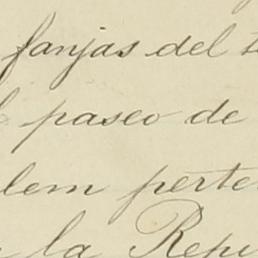 fanjas del
paseo de
lem perte
la Repu